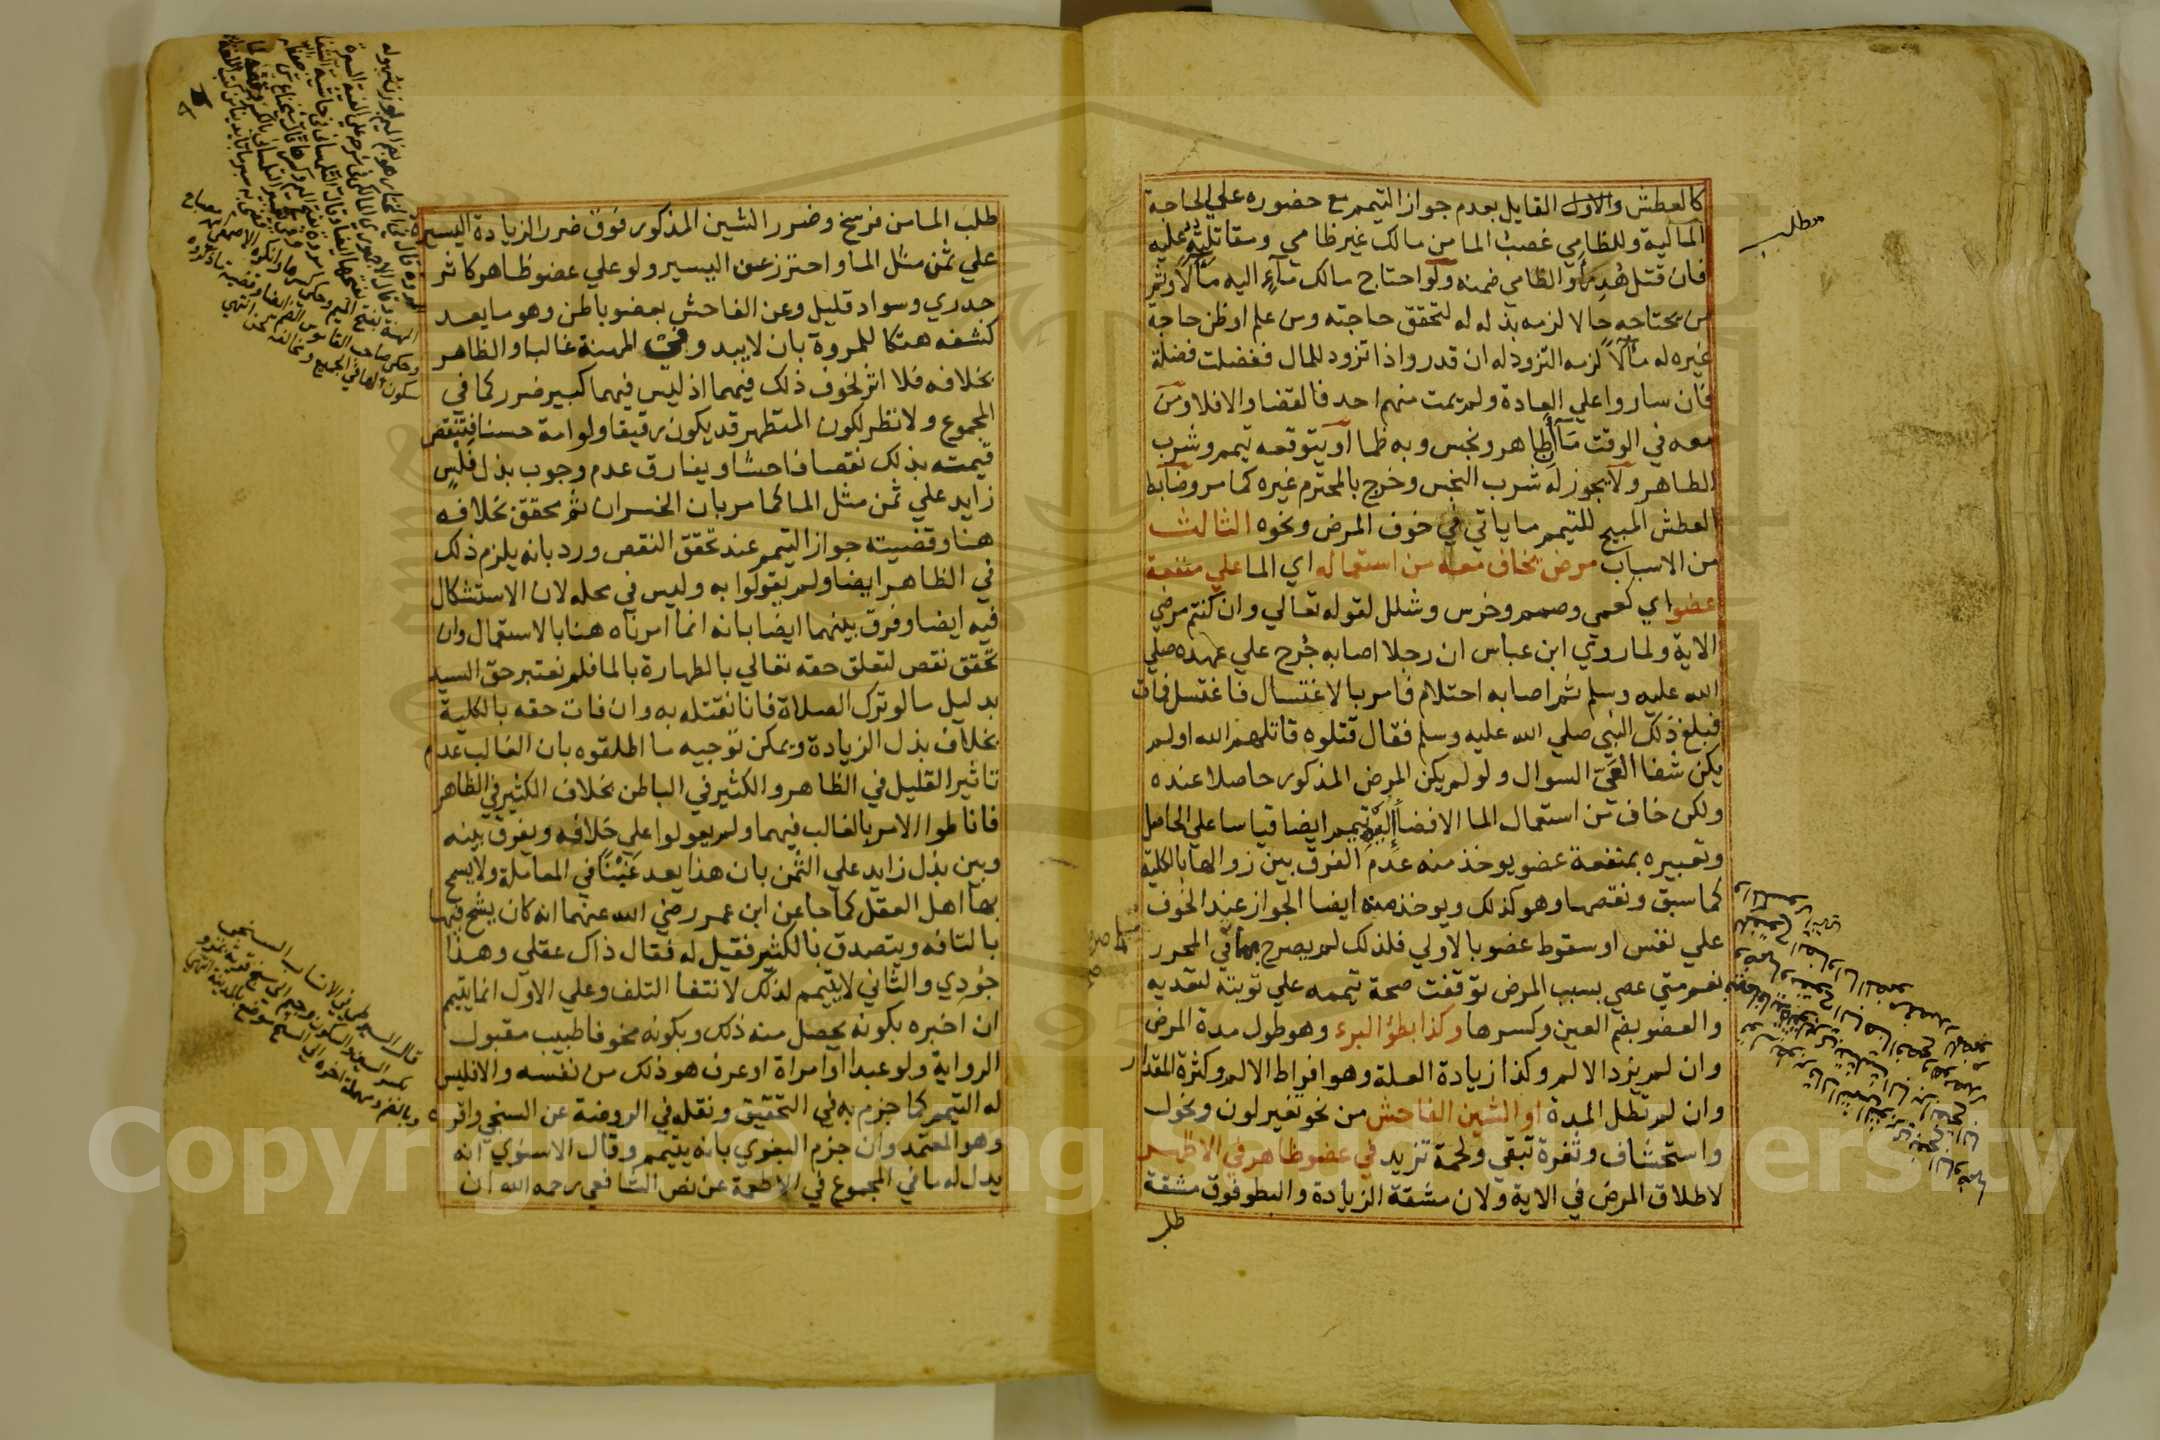 كالعطش والاول القايل بعدم جواز التيمم مع حضوره علي الحاجة
المالية وللظامي غصب الما من مالك غير ظامي ومقاتلته عليه
فان قتل هدر او الظامي ضمنه ولو احتاج مالك ماء اليه مآلا وثم
من يحتاجه حالا لزمه بذله له لتحقق حاجته ومن علم او ظن حاجة
غيره له مآلا لزمه التزود له ان قدر واذا تزود للمال ففضلت فضلة
فان ساروا علي العادة ولم يمت منهم احد فالقضا والا فلا ومن
معه في الوقت ماآن طاهر ونجس وبه ظما او يتوقعه تيمم وشرب
الطاهر ولا يجوز له شرب النجس وخرج بالمحترم غيره كما مر وضابط
العطش المبيح للتيمم ما ياتي في خوف المرض ونحوه الثالث
من الاسباب مرض يخاف معه من استعماله اي الما علي منفعة
عضو اي كعمي وصمم وخرس وشلل لقوله تعالي وان كنتم مرضي
الاية ولما روي ابن عباس ان رجلا اصابه جُرح علي عهده صلي
الله عليه وسلم ثم اصابه احتلام فامر بالاغتسال فاغتسل فمات
فبلغ ذلك النبي صلي الله عليه وسلم فقال قتلوه قاتلهم الله اولم
يكن شفا العيّ السوال ولو لم يكن المرض المذكور حاصلا عنده
ولكن خاف من استعمال الما الافضا اليه تيمم ايضا قياسا علي الحاصل
وتعبيره بمنفعة عضو يوخذ منه عدم الفرق بين زوالها بالكلية
كما سبق ونقصها وهو كذلك ويوخذ منه ايضا الجواز عند الخوف
علي نفس او سقوط عضو بالاولي فلذلك لم يصرح بهما في المحرر
نعم متي عصي بسبب المرض توقفت صحة تيممه علي توبته لتعديه
والعضو بضم العين وكسرها وكذا بطؤ البرء وهو طول مدة المرض
وان لم يزد الالم وكذا زيادة العلة وهو افراط الالم وكثرة المقدار
وان لم تطل المدة او الشين الفاحش من نحو تغير لون ونحول
واستحشاف وثغرة تبقي ولحمة تزيد في عضو ظاهر في الاظهر
لاطلاق المرض في الاية ولان مشقة الزيادة والبطو فوق مشقة
طلب
مطلب
طلب الما من فرسخ وضرر الشين المذكور فوق ضرر الزيادة اليسيرة
علي ثمن مثل الما واحترز عن اليسير ولو علي عضو ظاهر كاثر
جدري وسواد قليل وعن الفاحش بعضو باطن وهو ما يعد
كشفه هتكا للمروة بان لا يبدو في المهنة غالبا والظاهر
بخلافه فلا اثر لخوف ذلك فيهما اذ ليس فيهما كبير ضرر كما في
المجموع ولا نظر لكون المتطهر قد يكون رقيقا ولو امة حسنا فينقص
قيمته بذلك نقصا فاحشا ويفارق عدم وجوب بذل فلس
زايد علي ثمن مثل الما كما مر بان الخسران ثم محقق بخلافه
هنا وقضيته جواز التيمم عند تحقق النقص ورد بانه يلزم ذلك
في الظاهر ايضا ولم يقولوا به وليس في محله لان الاستشكال
فيه ايضا وفرق بينهما ايضا بانه انما امرناه هنا بالاستعمال وان
تحقق نقص لتعلق حقه تعالي بالطهارة بالما فلم نعتبر حق السيد
بدليل ما لو ترك الصلاة فانا نقتله به وان فات حقه بالكلية
بخلاف بذل الزيادة ويمكن توجيه ما اطلقوه بان الغالب عدم
تاثير القليل في الظاهر والكثير في الباطن بخلاف الكثير في الظاهر
فاناطوا الامر بالغالب فيهما ولم يعولوا علي خلافه ويفرق بينه
وبين بذل زايد علي الثمن بان هذا يعد غبنا في المعاملة ولا يسمح
بها اهل العقل كما جا عن ابن عمر رضي الله عنهما انه كان يشح فيها
بالتافه ويتصدق بالكثير فقيل له فقال ذاك عقلي وهذا
جودي والثاني لا يتيمم لذلك لانتفا التلف وعلي الاول انما يتيمم
ان اخبره بكونه يحصل منه ذلك وبكونه مخوفا طبيب مقبول
الرواية ولو عبدا او امراة او عرف هو ذلك من نفسه والا فليس
له التيمم كما جزم به في التحقيق ونقله في الروضة عن السنجي واقره
وهو المعتمد وان جزم البغوي بانه يتيمم وقال الاسنوي انه
يدل له ما في المجموع في الاطعمة عن نص الشافعي رحمه الله ان
قال السيوطي في الانساب السنجي
بكسر السين والسكون وجيم الي سنج قرية بمرو
Copyright © King Saud University